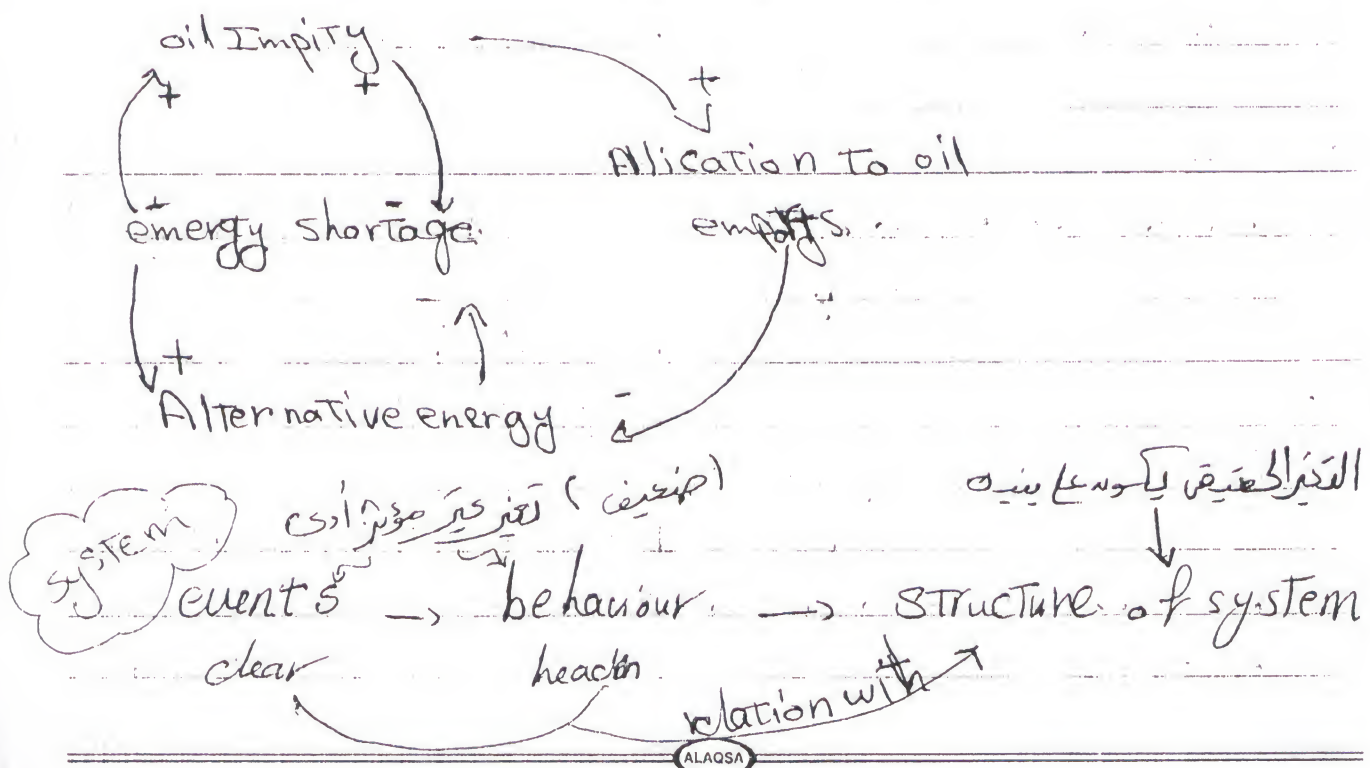 oil Impity
+ + +
Alication to oil
emergy shortage
-
+
Alternative energy -
system
(ضعيف) تغير غير مؤثر أدى
التغير الحقيقي يكون على بنيه
events → behaviour → structure of system
clear
relation with
ALAQSA